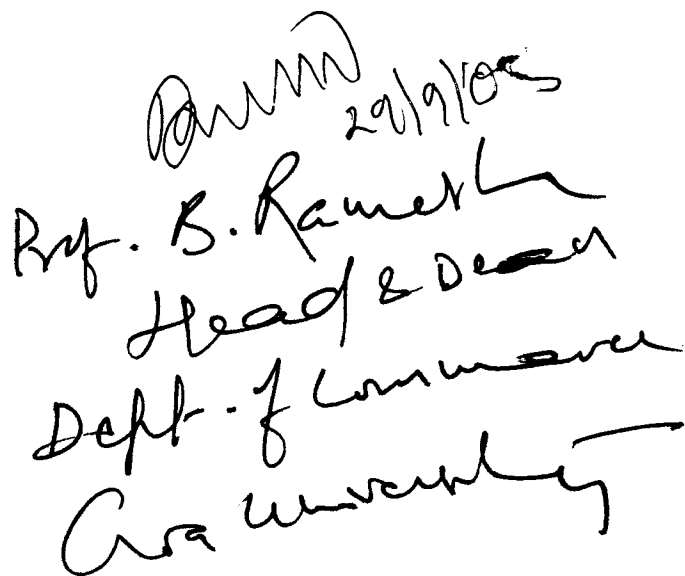 29/9/05
Prof. B. Ramesh
Head & Dean
Dept. of Commerce
Goa University